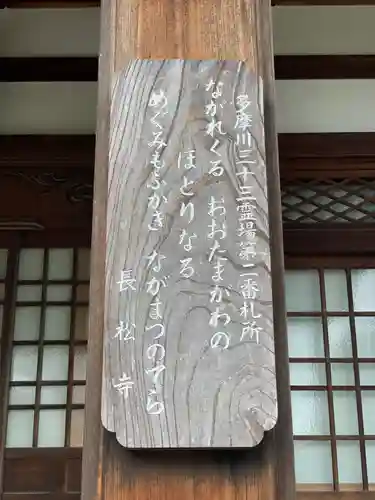 多摩川三十三霊場第二番札所
ながれくる おおたまかわの
ほとりなる
めぐみもふかき ながまつのてら
長松寺